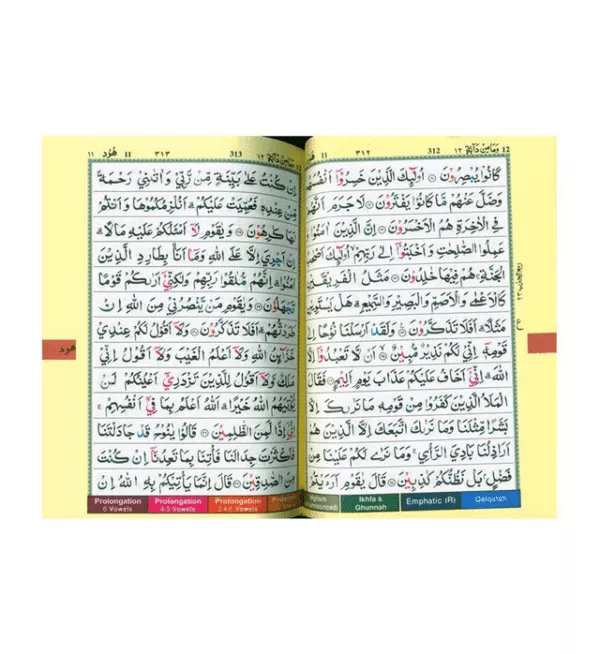 12 وَمَا مِنْ دَآبَّةٍ ١٢ 312 ٣١٢ 11
كَانُوْا يُبْصِرُوْنَ ۝ اُولٰٓئِكَ الَّذِيْنَ خَسِرُوْٓا اَنْفُسَهُمْ
وَضَلَّ عَنْهُمْ مَّا كَانُوْا يَفْتَرُوْنَ ۝ لَا جَرَمَ اَنَّهُمْ
فِي الْاٰخِرَةِ هُمُ الْاَخْسَرُوْنَ ۝ اِنَّ الَّذِيْنَ اٰمَنُوْا
عَمِلُوا الصّٰلِحٰتِ وَاَخْبَتُوْٓا اِلٰى رَبِّهِمْ اُولٰٓئِكَ اَصْحٰبُ
الْجَنَّةِ هُمْ فِيْهَا خٰلِدُوْنَ ۝ مَثَلُ الْفَرِيْقَيْنِ
كَالْاَعْمٰى وَالْاَصَمِّ وَالْبَصِيْرِ وَالسَّمِيْعِ هَلْ يَسْتَوِيٰنِ
مَثَلًا اَفَلَا تَذَكَّرُوْنَ ۝ وَلَقَدْ اَرْسَلْنَا نُوْحًا اِلٰى
قَوْمِهٖٓ اِنِّيْ لَكُمْ نَذِيْرٌ مُّبِيْنٌ ۝ اَنْ لَّا تَعْبُدُوْٓا اِلَّا
اللّٰهَ اِنِّيْٓ اَخَافُ عَلَيْكُمْ عَذَابَ يَوْمٍ اَلِيْمٍ ۝ فَقَالَ
الْمَلَاُ الَّذِيْنَ كَفَرُوْا مِنْ قَوْمِهٖ مَا نَرٰىكَ اِلَّا
بَشَرًا مِّثْلَنَا وَمَا نَرٰىكَ اتَّبَعَكَ اِلَّا الَّذِيْنَ هُمْ
اَرَاذِلُنَا بَادِيَ الرَّاْيِ وَمَا نَرٰى لَكُمْ عَلَيْنَا مِنْ
فَضْلٍۭ بَلْ نَظُنُّكُمْ كٰذِبِيْنَ ۝ قَالَ يٰقَوْمِ اَرَءَيْتُمْ
Ikhfa & Ghunnah
Emphatic (R)
Qalqalah
وَمَا مِنْ دَآبَّةٍ ١٢ 313 ٣١٣ 11 هُوْد ١١
اِنْ كُنْتُ عَلٰى بَيِّنَةٍ مِّنْ رَّبِّيْ وَاٰتٰىنِيْ رَحْمَةً
مِّنْ عِنْدِهٖ فَعُمِّيَتْ عَلَيْكُمْ اَنُلْزِمُكُمُوْهَا وَاَنْتُمْ
لَهَا كٰرِهُوْنَ ۝ وَيٰقَوْمِ لَآ اَسْئَلُكُمْ عَلَيْهِ مَالًا
اِنْ اَجْرِيَ اِلَّا عَلَى اللّٰهِ وَمَآ اَنَا بِطَارِدِ الَّذِيْنَ
اٰمَنُوْا اِنَّهُمْ مُّلٰقُوْا رَبِّهِمْ وَلٰكِنِّيْٓ اَرٰىكُمْ قَوْمًا
تَجْهَلُوْنَ ۝ وَيٰقَوْمِ مَنْ يَّنْصُرُنِيْ مِنَ اللّٰهِ اِنْ
طَرَدْتُّهُمْ اَفَلَا تَذَكَّرُوْنَ ۝ وَلَآ اَقُوْلُ لَكُمْ عِنْدِيْ
خَزَآئِنُ اللّٰهِ وَلَآ اَعْلَمُ الْغَيْبَ وَلَآ اَقُوْلُ اِنِّيْ
مَلَكٌ وَّلَآ اَقُوْلُ لِلَّذِيْنَ تَزْدَرِيْٓ اَعْيُنُكُمْ لَنْ
يُّؤْتِيَهُمُ اللّٰهُ خَيْرًا اَللّٰهُ اَعْلَمُ بِمَا فِيْٓ اَنْفُسِهِمْ
اِنِّيْٓ اِذًا لَّمِنَ الظّٰلِمِيْنَ ۝ قَالُوْا يٰنُوْحُ قَدْ جَادَلْتَنَا
فَاَكْثَرْتَ جِدَالَنَا فَاْتِنَا بِمَا تَعِدُنَآ اِنْ كُنْتَ
مِنَ الصّٰدِقِيْنَ ۝ قَالَ اِنَّمَا يَاْتِيْكُمْ بِهِ اللّٰهُ اِنْ
Prolongation 6 Vowels
Prolongation 4-5 Vowels
Prolongation 2-4-6 Vowels
هود